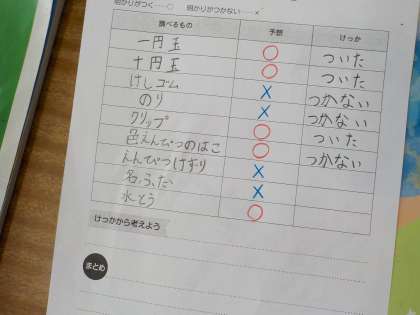 明かりがつく……○　明かりがつかない……×
調べるもの　予想　けっか
一円玉　○　ついた
十円玉　○　ついた
けしゴム　×　つかない
のり　×　つかない
クリップ　○　ついた
色えんぴつのはこ　○　つかない
えんぴつけずり　×
名ふだ　×
水とう　○
けっかから考えよう
まとめ